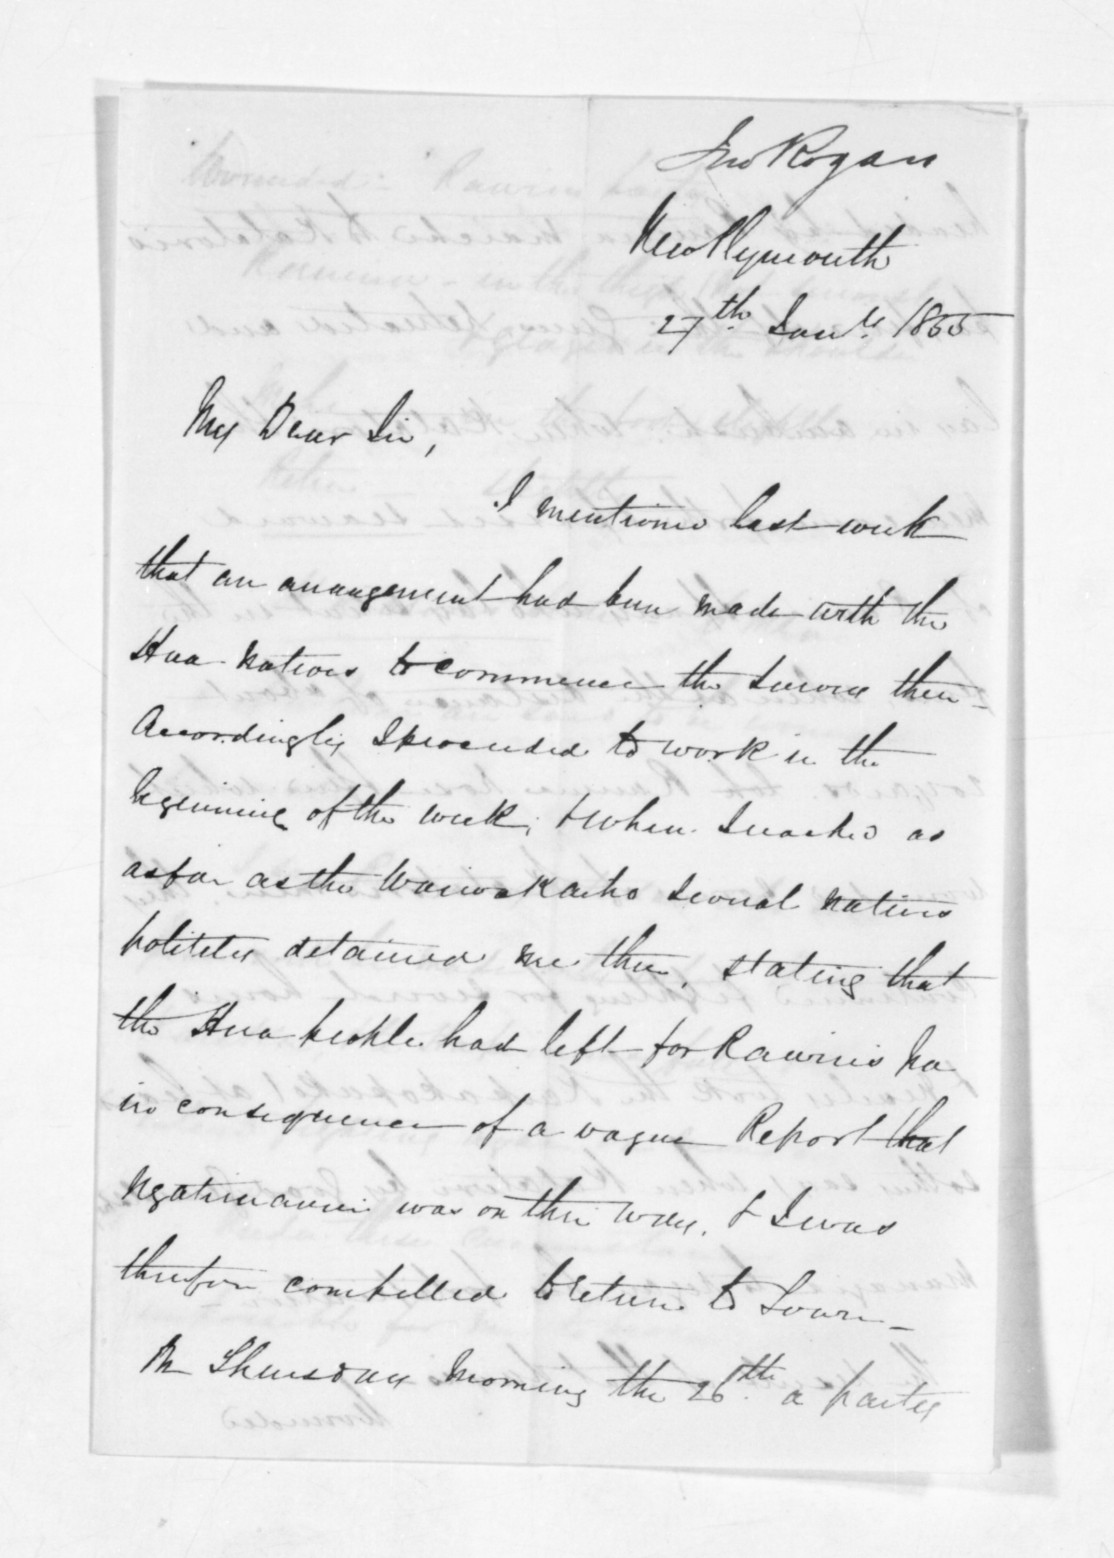 Jno Rogan
New Plymouth
27th. Jany. 1855
My Dear Sir,
I mentioned last week
that an arrangement had been made with the
Hua natives to commence the survey there_
Accordingly I proceeded to work in the
beginning of the week, & when I reached as
as far as the Waiwakaiho several natives
politely detained me there, stating that
the Hua people had left for Rawiris pa
in consequence of a vague Report that
Ngatiruanui was on their way, & I was
therefore compelled to return to Town_
On Thursday Morning the 26th. a party